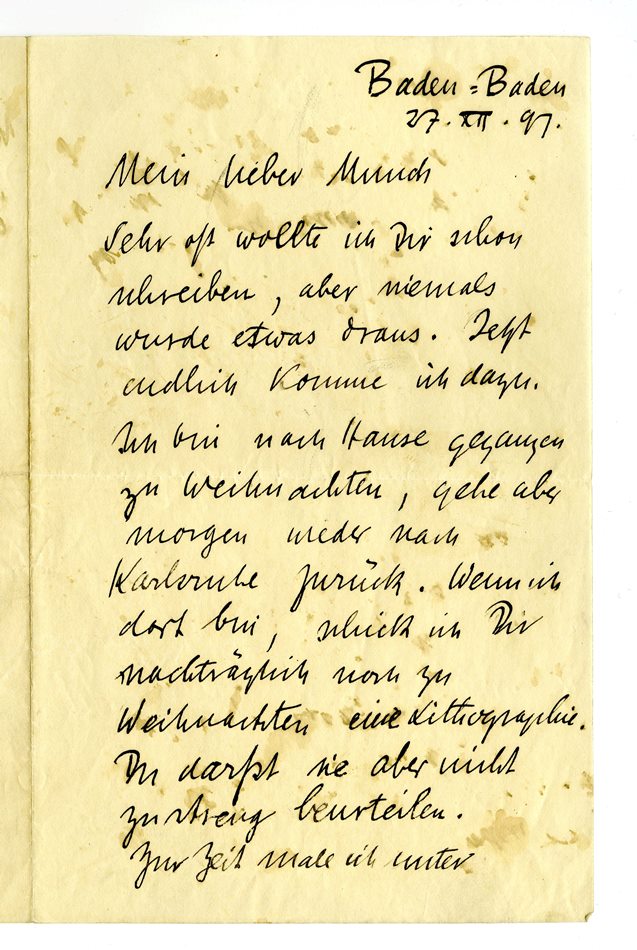 Baden=Baden
27. XII. 97.
Mein lieber Munch
Sehr oft wollte ich Dir schon
schreiben, aber niemals
wurde etwas draus. Jetzt
endlich komme ich dazu.
Ich bin nach Hause gegangen
zu Weihnachten, gehe aber
morgen wieder nach
Karlsruhe zurück. Wenn ich
dort bin, schick ich Dir
nachträglich noch zu
Weihnachten eine Lithographie.
Du darfst sie aber nicht
zu streng beurteilen.
Zur Zeit male ich unter